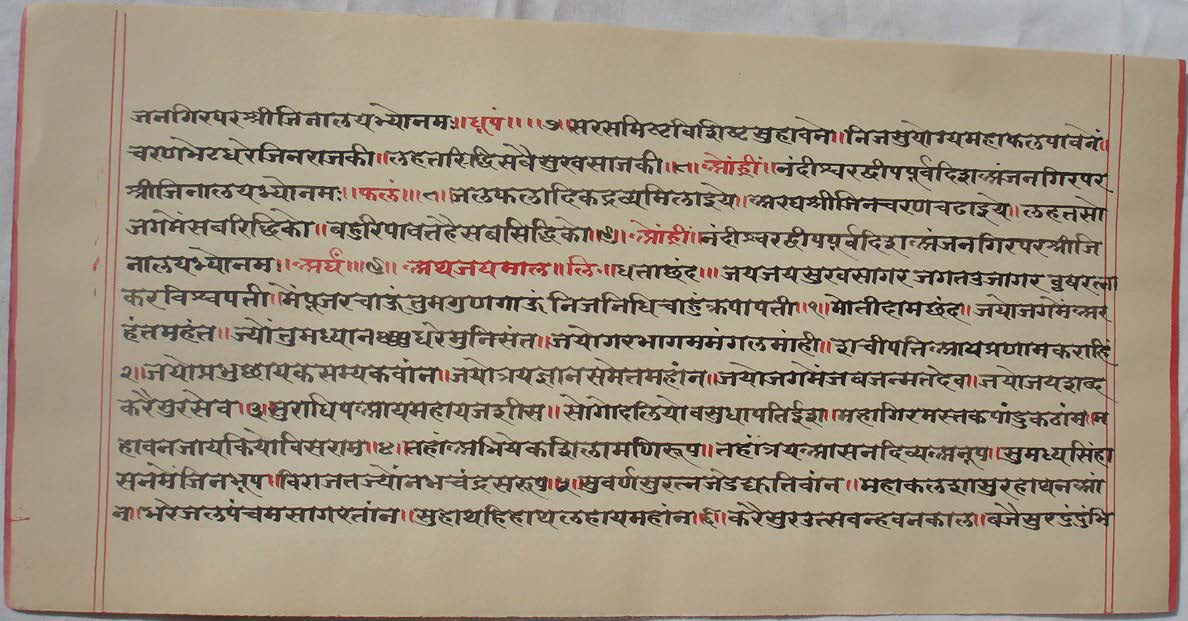 जनगिरपरश्रीजिनालयभ्योनमः॥धूपं॥॥७॥सरसमिष्टविशिष्टसुहावने॥निजसुयोग्यमहाफलपावनें॥
चरणभेटधरेजिनराजकी॥लहतरिद्धिसवैसुखसाजकी॥८॥ओंह्रीं॥नंदीश्वरद्वीपपूर्वदिशअंजनगिरपर
श्रीजिनालयभ्योनमः॥फलं॥॥८॥जलफलादिकद्रव्यमिलाइये॥अरघश्रीजिनचरणचढाइय॥लहतसो
जगेमंसबरिद्धिको॥बहुरिपावतहैसबसिद्धिको॥९॥ओंह्रीं॥नंदीश्वरद्वीपपूर्वदिशअंजनगिरपरश्रीजि
नालयभ्योनम॥अर्घं॥॥९॥अथजयमाल॥लि॥धताछंद॥॥जयजयसुखसागरजगतउजागर
करविश्वपती॥मेंपूजरचाऊंतुमगुणगाऊंनिजनिधिचाहुक्रपापती॥१॥मोतीदामछंद॥जयोजगेमंअर
हंतमहंत॥ज्योंतुमध्यानधरेमुनिसंत॥जयोगरभागममंगलमांही॥शचीपतिआयप्रणामकराहिं
२॥जयोप्रभुछायकसम्यकवांन॥जयोत्रयज्ञानसमेतमहांन॥जयोजगमेंजवजन्मतदेव॥जयोजयशब्द
करैसुरसेव॥३॥सुराधिपआयमहायजशीस॥सोगोदलियोवसुधापतिईश॥महागिरमस्तकपांडुकठांम॥म
हावनजायकियोविसराम॥४॥तहांअभियेकशिलामणिरूप॥तहांत्रयआसनदिव्यअनूप॥सुमध्यसिंहा
सनेमंजिनभूप॥विराजतज्योंनभचंद्रसरूप॥५॥सुवर्णसुरत्नजेडद्युतिवांन॥महाकलशासुरहाथनआं
न॥भरेजलपंचमसागरतांन॥सुहाथहिहाथलहायमहांन॥६॥करैसुरउत्सवन्हवनकाल॥वजैसुरदुंदुंभि